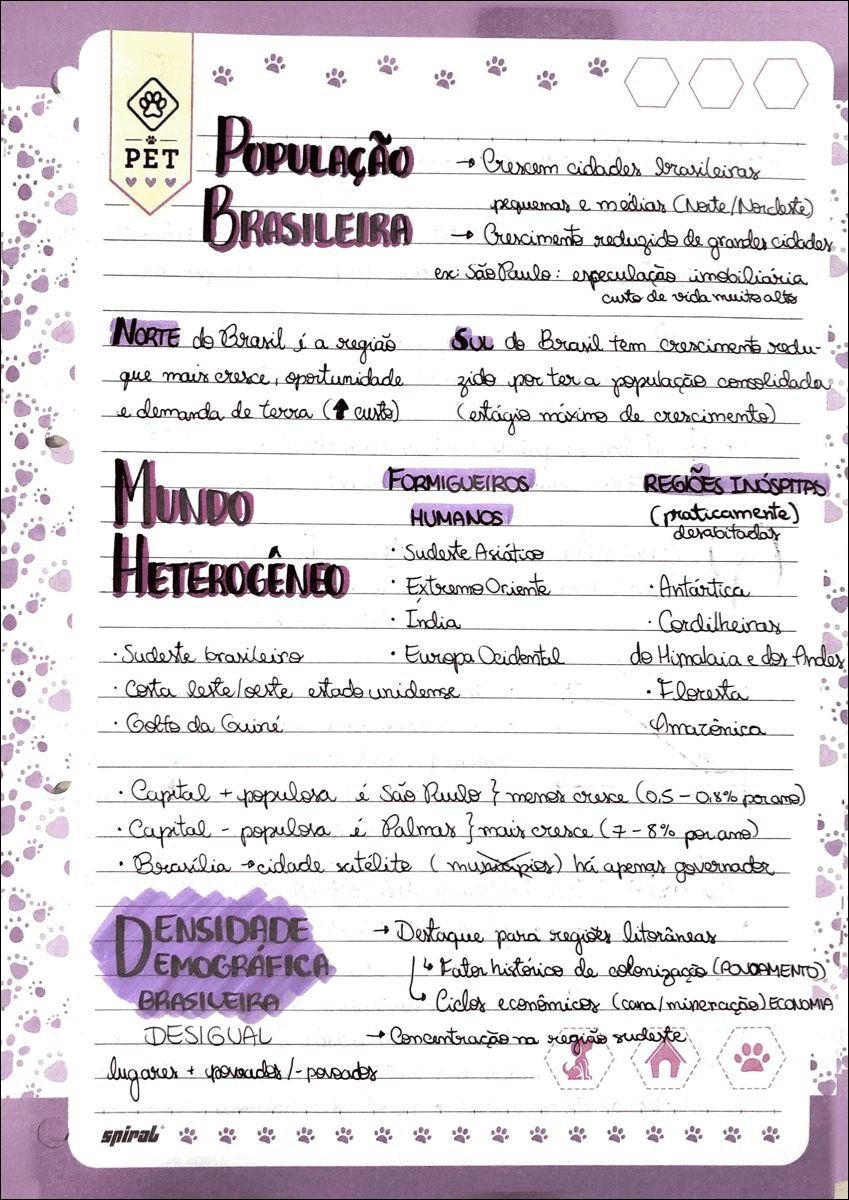 PET
POPULAÇÃO
BRASILEIRA
→ Crescem cidades brasileiras
pequenas e médias (Norte/Nordeste)
→ Crescimento reduzido de grandes cidades
ex: São Paulo: especulação imobiliária
custo de vida muito alto
NORTE do Brasil é a região
que mais cresce, oportunidade
e demanda de terra (↑ custo)
SUL do Brasil tem crescimento redu-
zido por ter a população consolidada
(estágio máximo de crescimento)
MUNDO
HETEROGÊNEO
FORMIGUEIROS
HUMANOS
· Sudeste Asiático
· Extremo Oriente
· Índia
· Europa Ocidental
REGIÕES INÓSPITAS
(praticamente)
desabitadas
· Antártica
· Cordilheiras
do Himalaia e dos Andes
· Floresta
Amazônica
· Sudeste brasileiro
· Costa leste/oeste estadounidense
· Golfo da Guiné
· Capital + populosa é São Paulo } menos cresce (0,5 - 0,8% por ano)
· Capital - populosa é Palmas } mais cresce (7 - 8% por ano)
· Brasília → cidade satélite (municípios) há apenas governador
DENSIDADE
DEMOGRÁFICA
BRASILEIRA
DESIGUAL
lugares + povoados/- povoados
→ Destaque para regiões litorâneas
↳ Fator histórico de colonização (POVOAMENTO)
↳ Ciclos econômicos (cana/mineração) ECONOMIA
→ Concentração na região sudeste
spiral